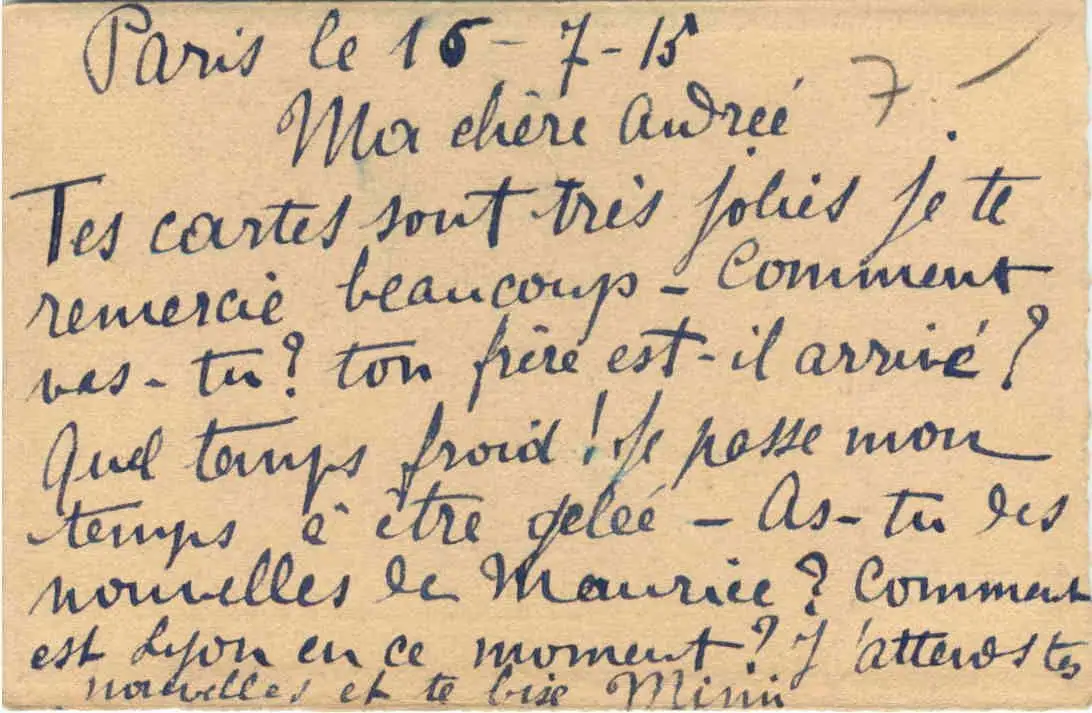 Paris le 16-7-15
7 -
Ma chère Andreé
Tes cartes sont très jolies je te
remercie beaucoup - Comment
vas-tu? ton frère est-il arrivé?
Quel temps froid! Je passe mon
temps à être geleé - As-tu des
nouvelles de Maurice? Comment
est Lyon en ce moment? J'attends tes
nouvelles et te bise Mimi